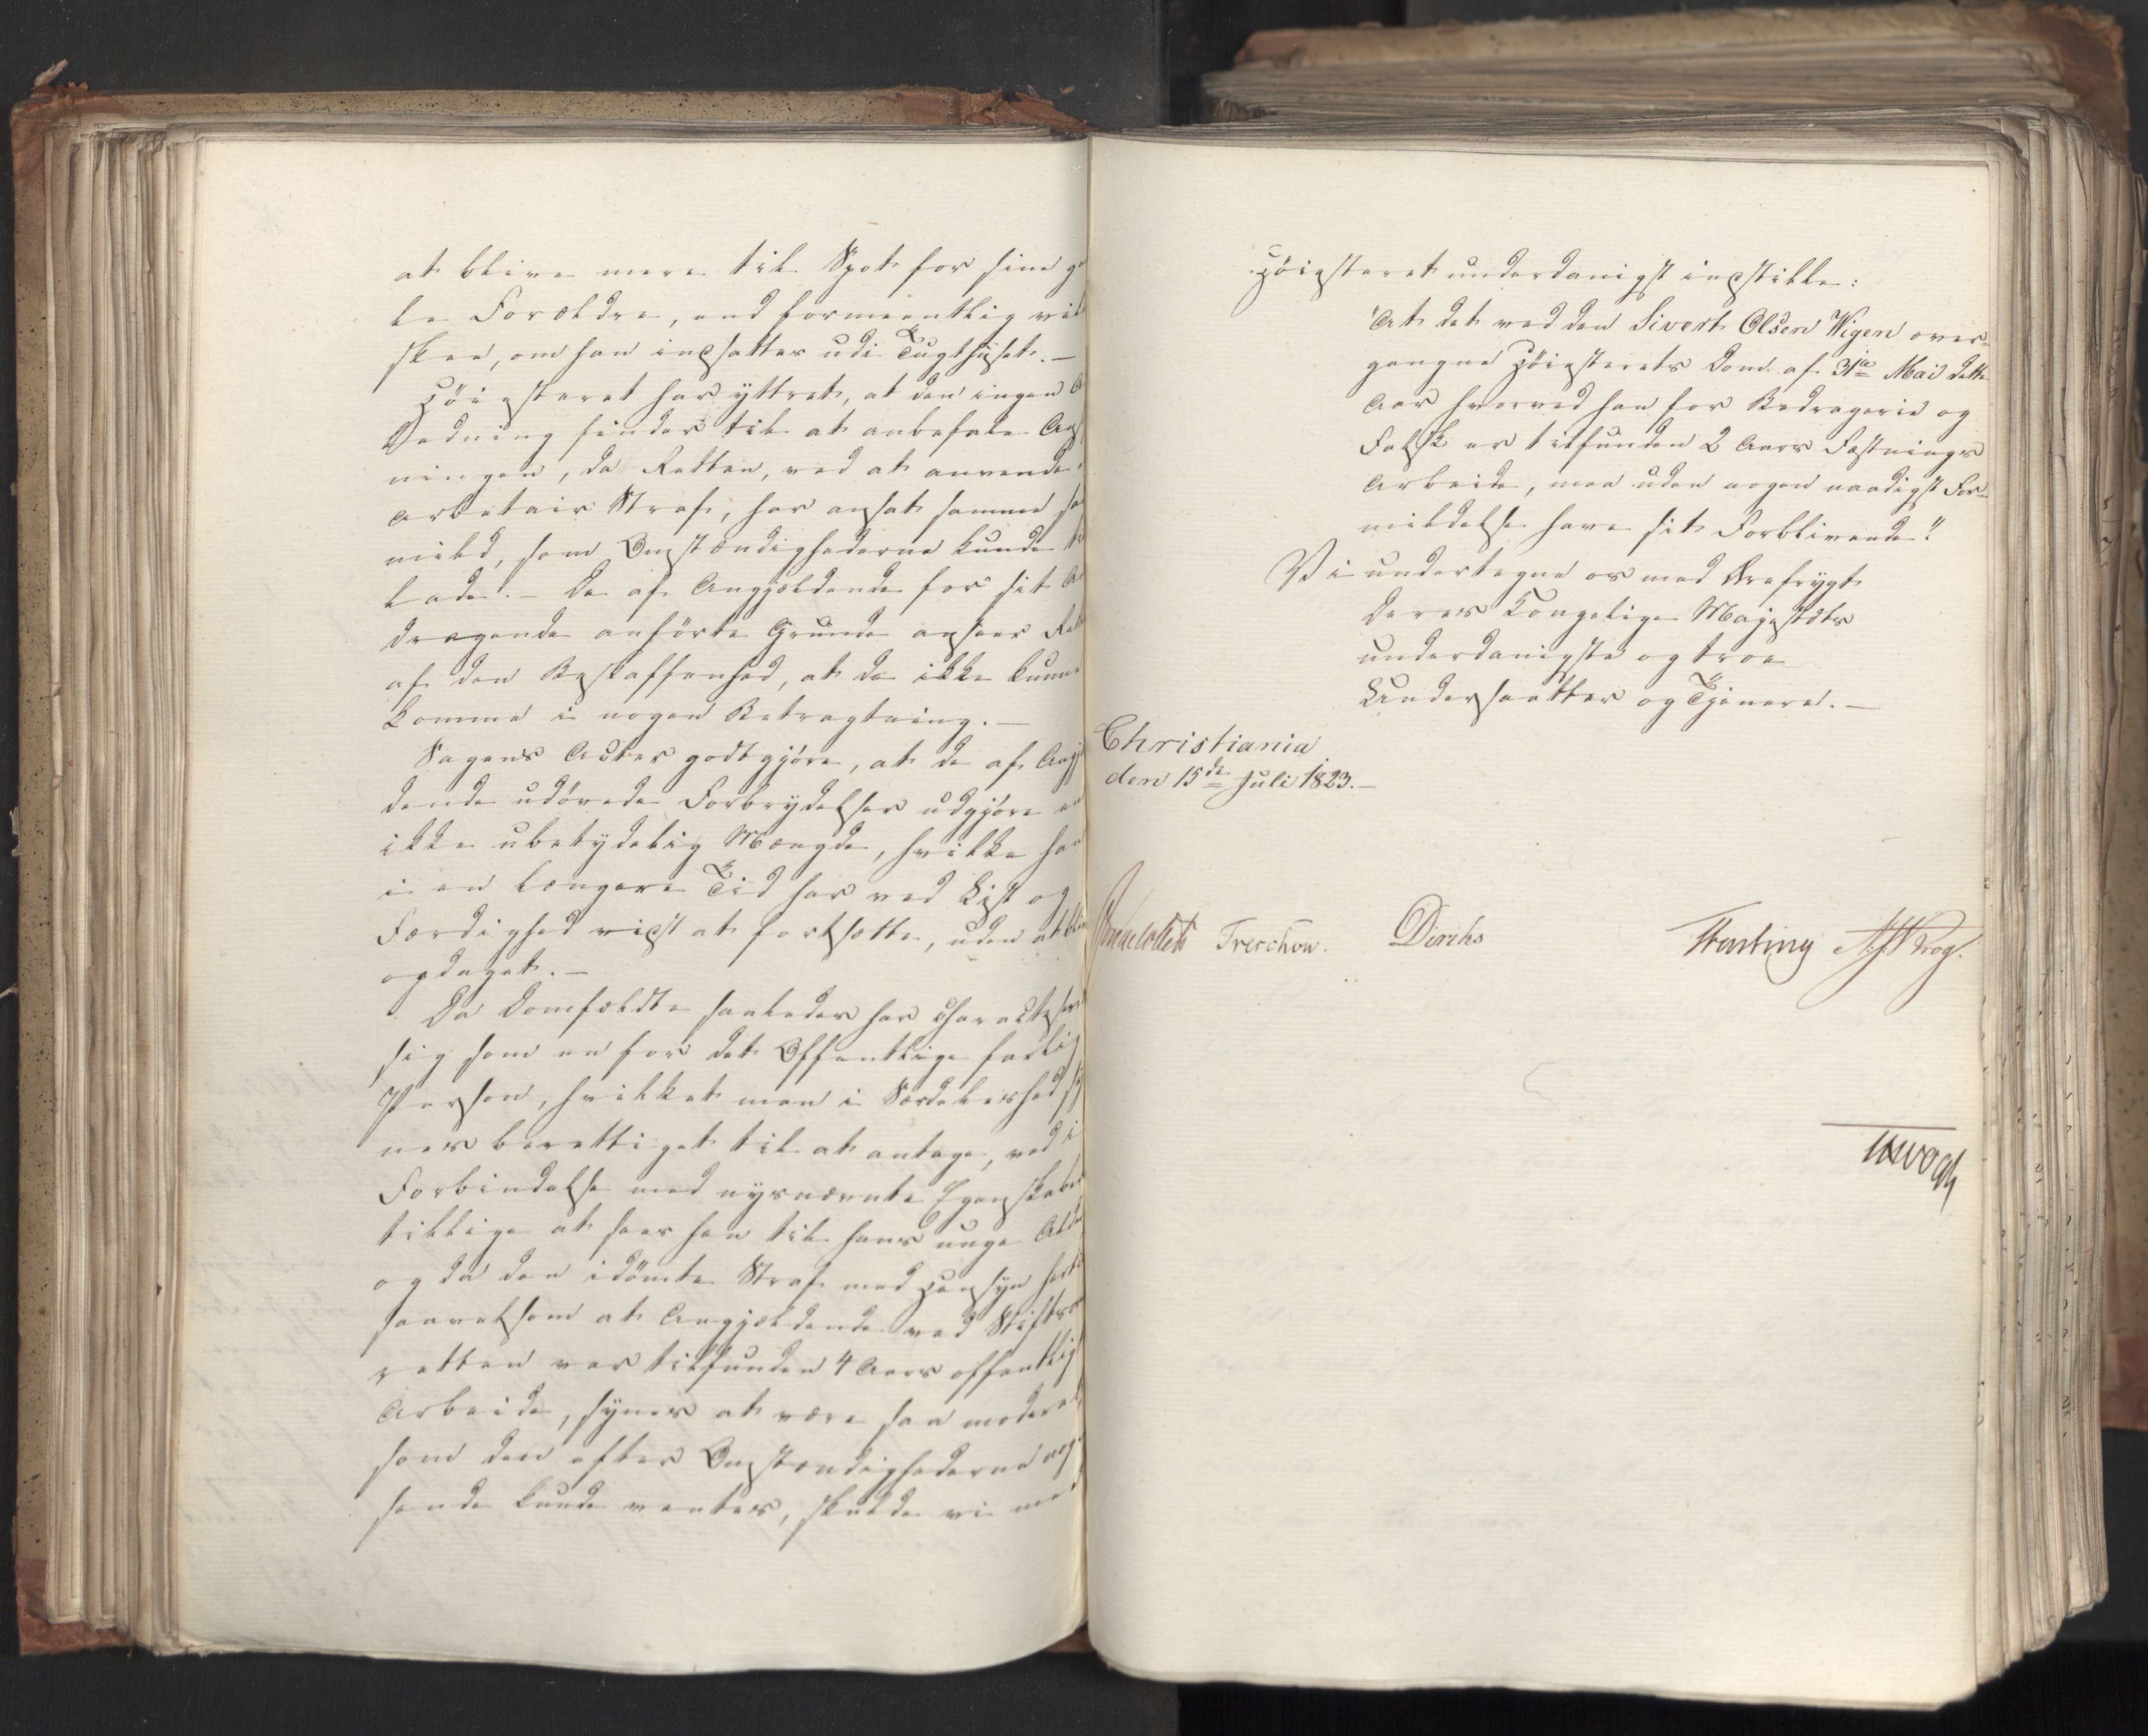 at blive mere til Spot for sine ga
le Forældre, end formeentlig vil
skee, om han indsættes udi Tugthuset. —
Höiesteret har yttret, at den ingen A
ledning finder til at anbefale Ans
ningen, da Retten, ved at anvende
arbitair Straf, har ansat samme saa
mild, som Omstændighederne kunde til
lade. — De af Angjældende for sit A
dragende anförte Grunde ansees Rett
af den Beskaffenhed, at de ikke kunne
komme i nogen Betragtning. —
Sagens Acter godtgjöre, at de af Angj
dende udövede Forbrydelser udgjöre en
ikke ubetydelig Mængde, hvilke han
i en længere Tid har ved List og
Færdighed vidst at fortsætte, uden at bli
opdaget. —
Da Domfældte saaledes har charakteser
sig som en for det Offentlige farlig
Person, hvilket man i Særdeleshed sy
nes berettiget til at antage, ved i
Forbindelse med nysnævnte Egenskaber
tillige at sees hen til hans unge Alder
og da den idömte Straf med Hensyn hertil
saavelsom at Angjældende ved Stifts
retten var tilfunden 4 Aars offentlig
Arbeide, synes at være saa moderat,
som den efter Omstændighederne nog
sende kunde ventes, skulde vi med
Höiesteret underdanigst indstille:
"At det ved den Sivert Olsen Wigen over-
gangne Höiesterets Dom af 31te Mai dette
Aar hvorved han for Bedragerie og
Falsk er tilfunden 2 Aars Fæstnings
Arbeide, maa uden nogen naadigst For-
mildelse have sit Forblivende."
Vi undertegne os med Ærefrygt
Deres Kongelige Majestæts
underdanigste og troe
Undersaatter og Tjenere. —
Christiania
den 15de Juli 1823. —
Treschow. Diriks